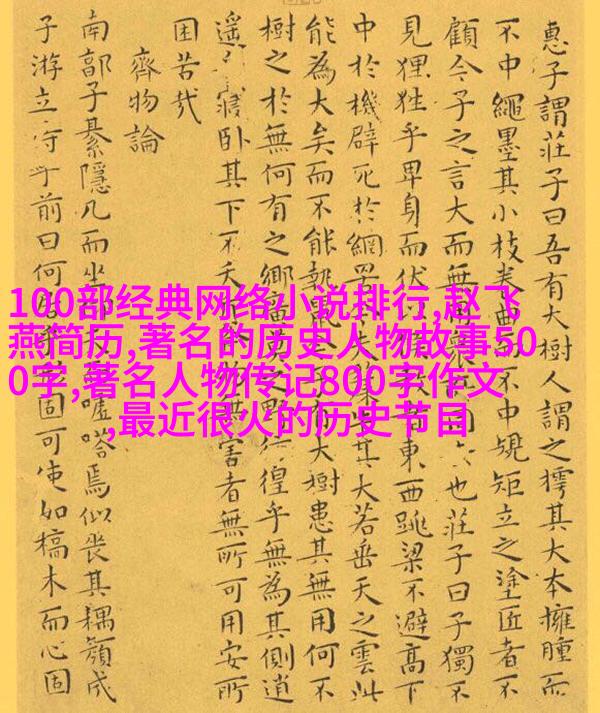 惠子謂莊子曰吾有大樹人謂之樗其大本擁腫而
不中繩墨其小枝卷曲而不中規矩立之塗匠者不
顧今子之言大而無用衆同也莊子曰子獨不
見狸狌乎卑身而伏候敖東西跳梁不避高下
中於機辟死於網罟夫其大若垂天之雲此
能為大矣而不能執鼠乎有大樹患其無用何不
樹之於無何有之鄉廣莫之野彷徨乎無為其側逍
遙寢卧其下不夭物無害者無所可用安所
困苦哉
齊物論
南郭子綦隱几而坐仰天嘘嗒焉似喪其耦顏成
子游立侍乎前曰何居固可使如槁木而心固
100部经典网络小说排行,赵飞
燕简历,著名的历史人物故事50
0字,著名人物传记800字作文
,最近很火的历史节目